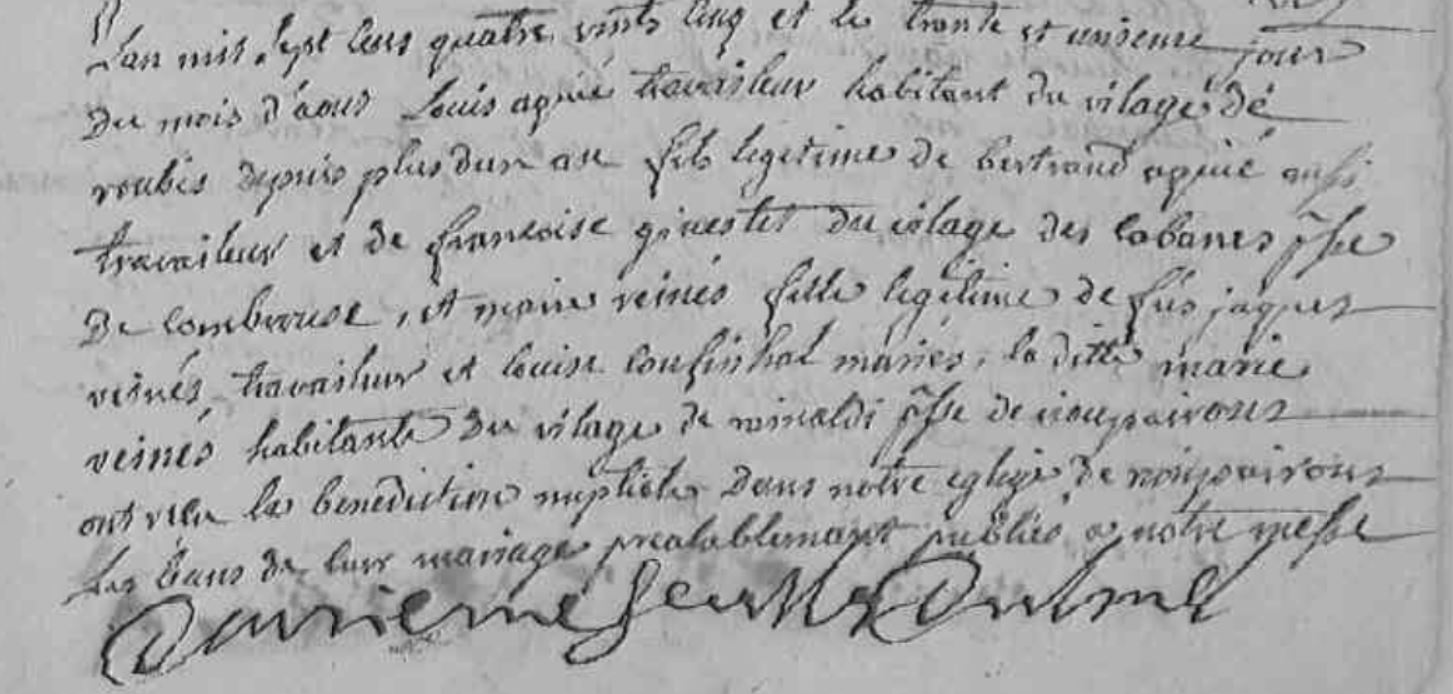 L'an mil sept cens quatre vints cinq et le trante et unieme jour
Du mois d'aout Louis agnié travaileur habitant du vilage dé
roubis depuis plus dun an fils legitime de bertrand agnié aussi
travaileur et de francoise ginestet du vilage des cabanes psse
De comberouse, et marie veinés fille legitime de fus jaques
veinés, travaileur et louise coufinhal mariés, la ditte marie
veinés habitante du vilage de rinaldi psse de
ont recu la benediction nuptiale dans notre eglise de
Les bans de leur mariage prealablemant publiés a notre messe